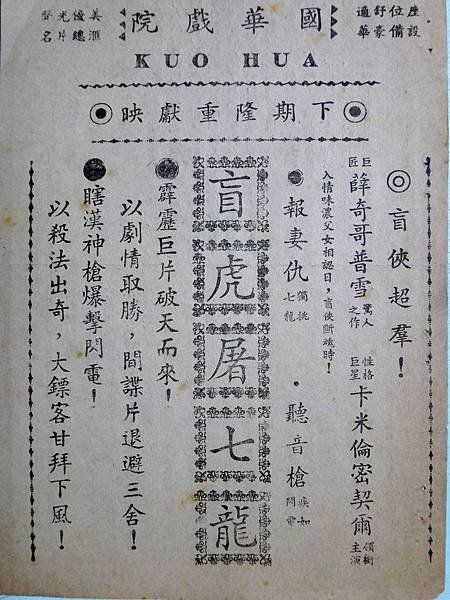 座位舒適
設備豪華
國華戲院
聲光優美
名片總滙
KUO HUA
◎下期隆重獻映◎
◎盲俠超羣！
巨匠薛奇哥普雪驚人之作 性格巨星卡米倫密契爾領銜主演
入情味濃父女相認日，盲俠斷魂時！
●報妻仇獨挑七龍・聽音槍疾如閃電
盲虎屠七龍
●霹靂巨片破天而來！
以劇情取勝，間諜片退避三舍！
●瞎漢神槍爆擊閃電！
以殺法出奇，大鏢客甘拜下風！